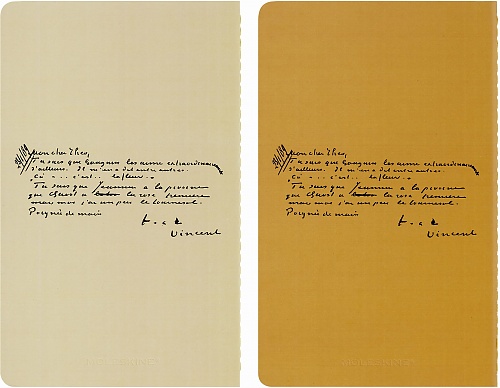 Mon cher Theo,
Tu sais que Gauguin les aime extraordinairement
d'ailleurs. Il m'en a dit entre autres:
ça - ... c'est... la fleur -
Tu sais que Jeannin a la pivoine
que Quost a la rose
mais moi j'ai un peu le tournesol.
Poignée de main
t. à t.
Vincent
Mon cher Theo,
Tu sais que Gauguin les aime extraordinairement
d'ailleurs. Il m'en a dit entre autres:
ça - ... c'est... la fleur -
Tu sais que Jeannin a la pivoine
que Quost a la rose
mais moi j'ai un peu le tournesol.
Poignée de main
t. à t.
Vincent